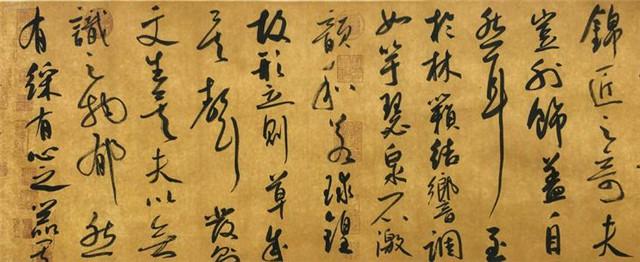 錦匠之奇夫
豈外飾蓋自
然耳至
於林籟結響調
如竽瑟泉石激
韻和若球鍠
故形立則章成
矣聲發則
文生矣夫以無
識之物郁然
有綵有心之器